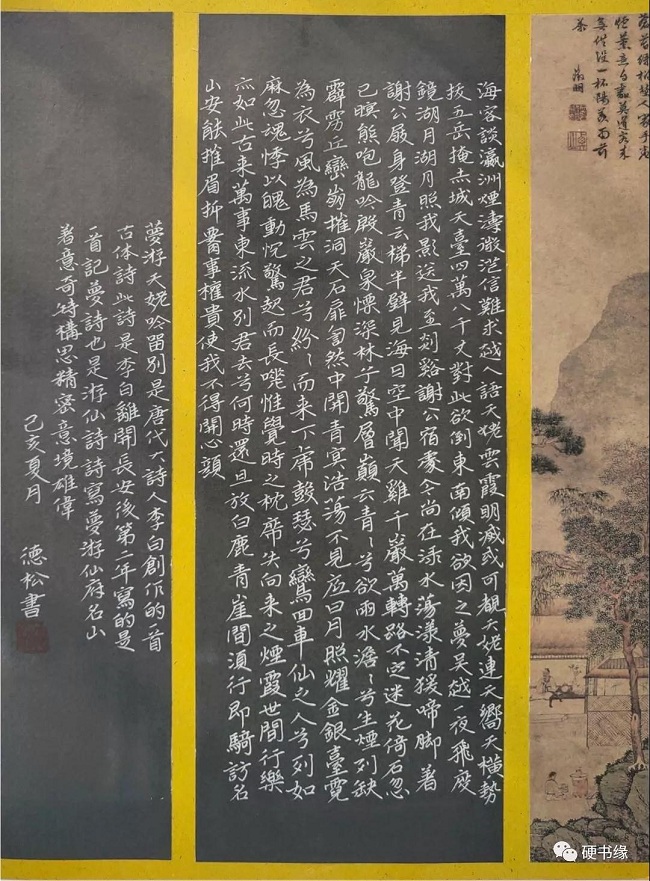 莫道客来
無供設一杯陽羨雨前
茶
徵明
海客談瀛洲煙濤微茫信難求越人語天姥雲霞明滅或可覩天姥連天嚮天橫勢
拔五岳掩赤城天臺四萬八千丈對此欲倒東南傾我欲因之夢吴越一夜飛度
鏡湖月湖月照我影送我至剡谿謝公宿處今尚在淥水蕩漾清猨啼脚著
謝公屐身登青云梯半壁見海日空中聞天雞千巖萬轉路不定迷花倚石忽
已暝熊咆龍吟殷巖泉慄深林兮驚層巔云青〻兮欲雨水澹〻兮生煙列缺
霹靂丘巒崩摧洞天石扉訇然中開青冥浩蕩不見底日月照耀金銀臺霓
為衣兮風為馬雲之君兮紛〻而来下虎鼓瑟兮鸞回車仙之人兮列如
麻忽魂悸以魄動怳驚起而長嗟惟覺時之枕席失向来之煙霞世間行樂
亦如此古来萬事東流水别君去兮何時還且放白鹿青崖間須行即騎訪名
山安能摧眉折腰事權貴使我不得開心顏
夢游天姥吟留别是唐代大詩人李白創作的首
古体詩此詩是李白離開長安後第二年寫的是
一首記夢詩也是游仙詩詩寫夢游仙府名山
著意奇特構思精密意境雄偉
己亥夏月 德松書
硬书缘